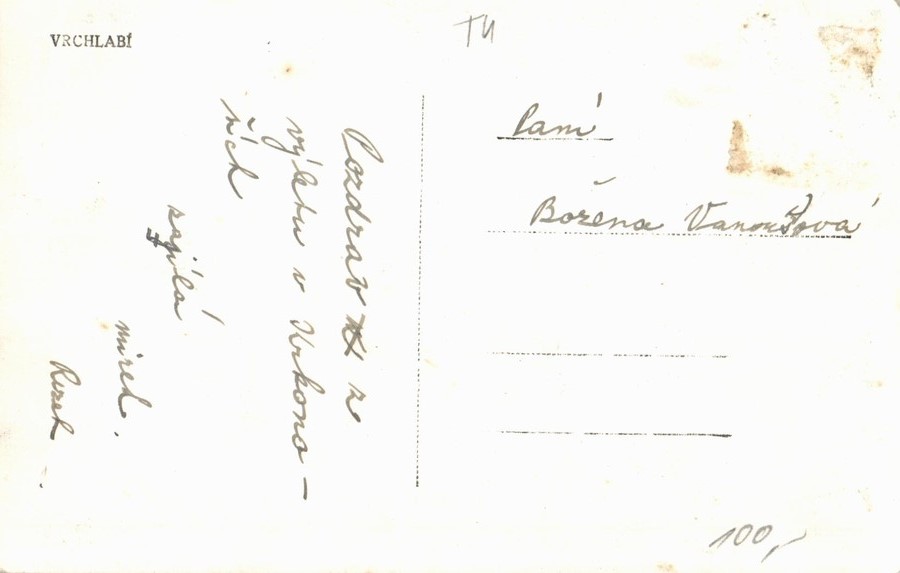 VRCHLABÍ
TU
Pozdrav z
výletu v Krkono-
ších
zasílá
Mirek.
Rezek
Paní
Božena Vanoušová
100,-